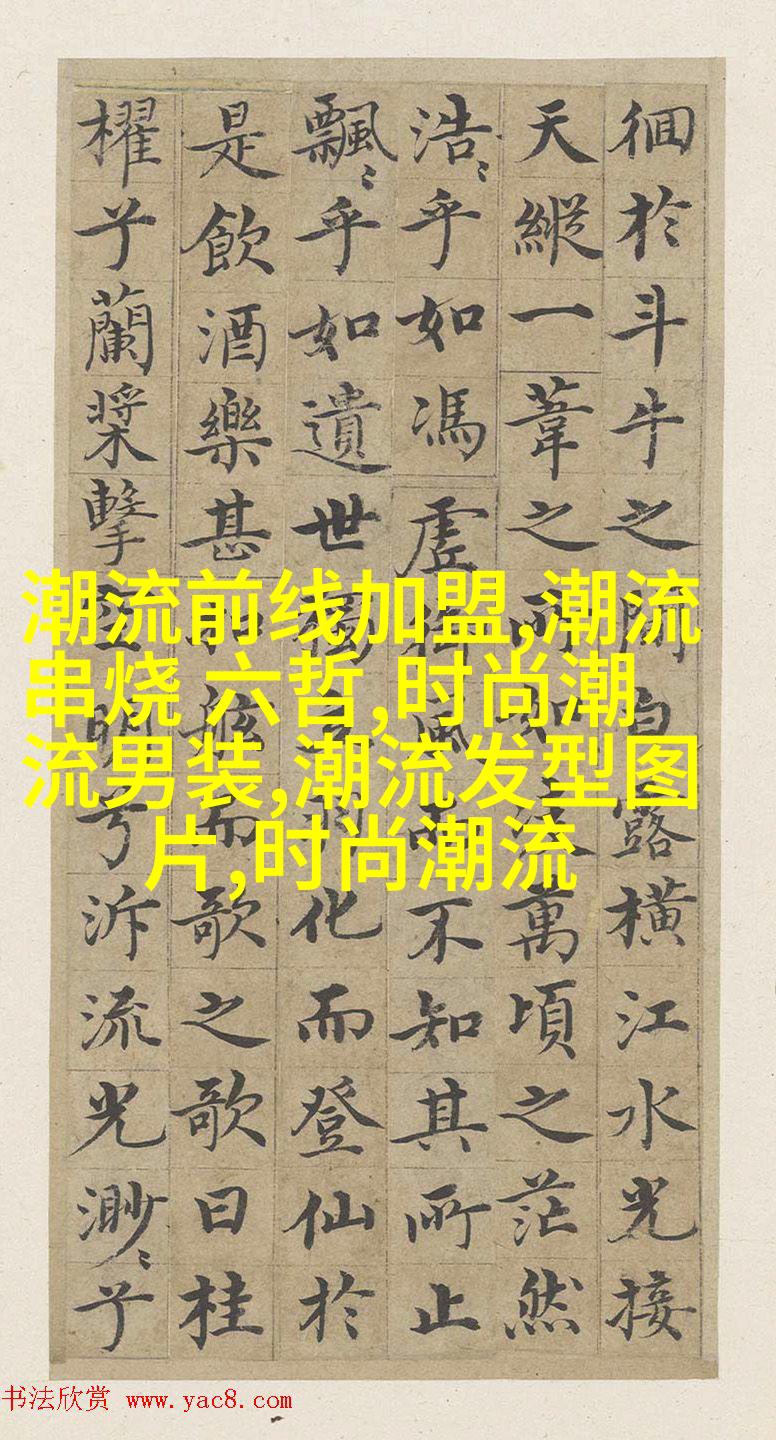 潮流前线加盟,潮流
串烧 六哲,时尚潮
流男装,潮流发型图
片,时尚潮流
徊於斗牛之間白露橫江水光接
天縱一葦之所如凌萬頃之茫然
浩〻乎如馮虛御風而不知其所止
飄〻乎如遺世獨立羽化而登仙於
是飲酒樂甚扣舷而歌之歌曰桂
櫂兮蘭槳擊空明兮泝流光渺〻兮
书法欣赏 www.yac8.com